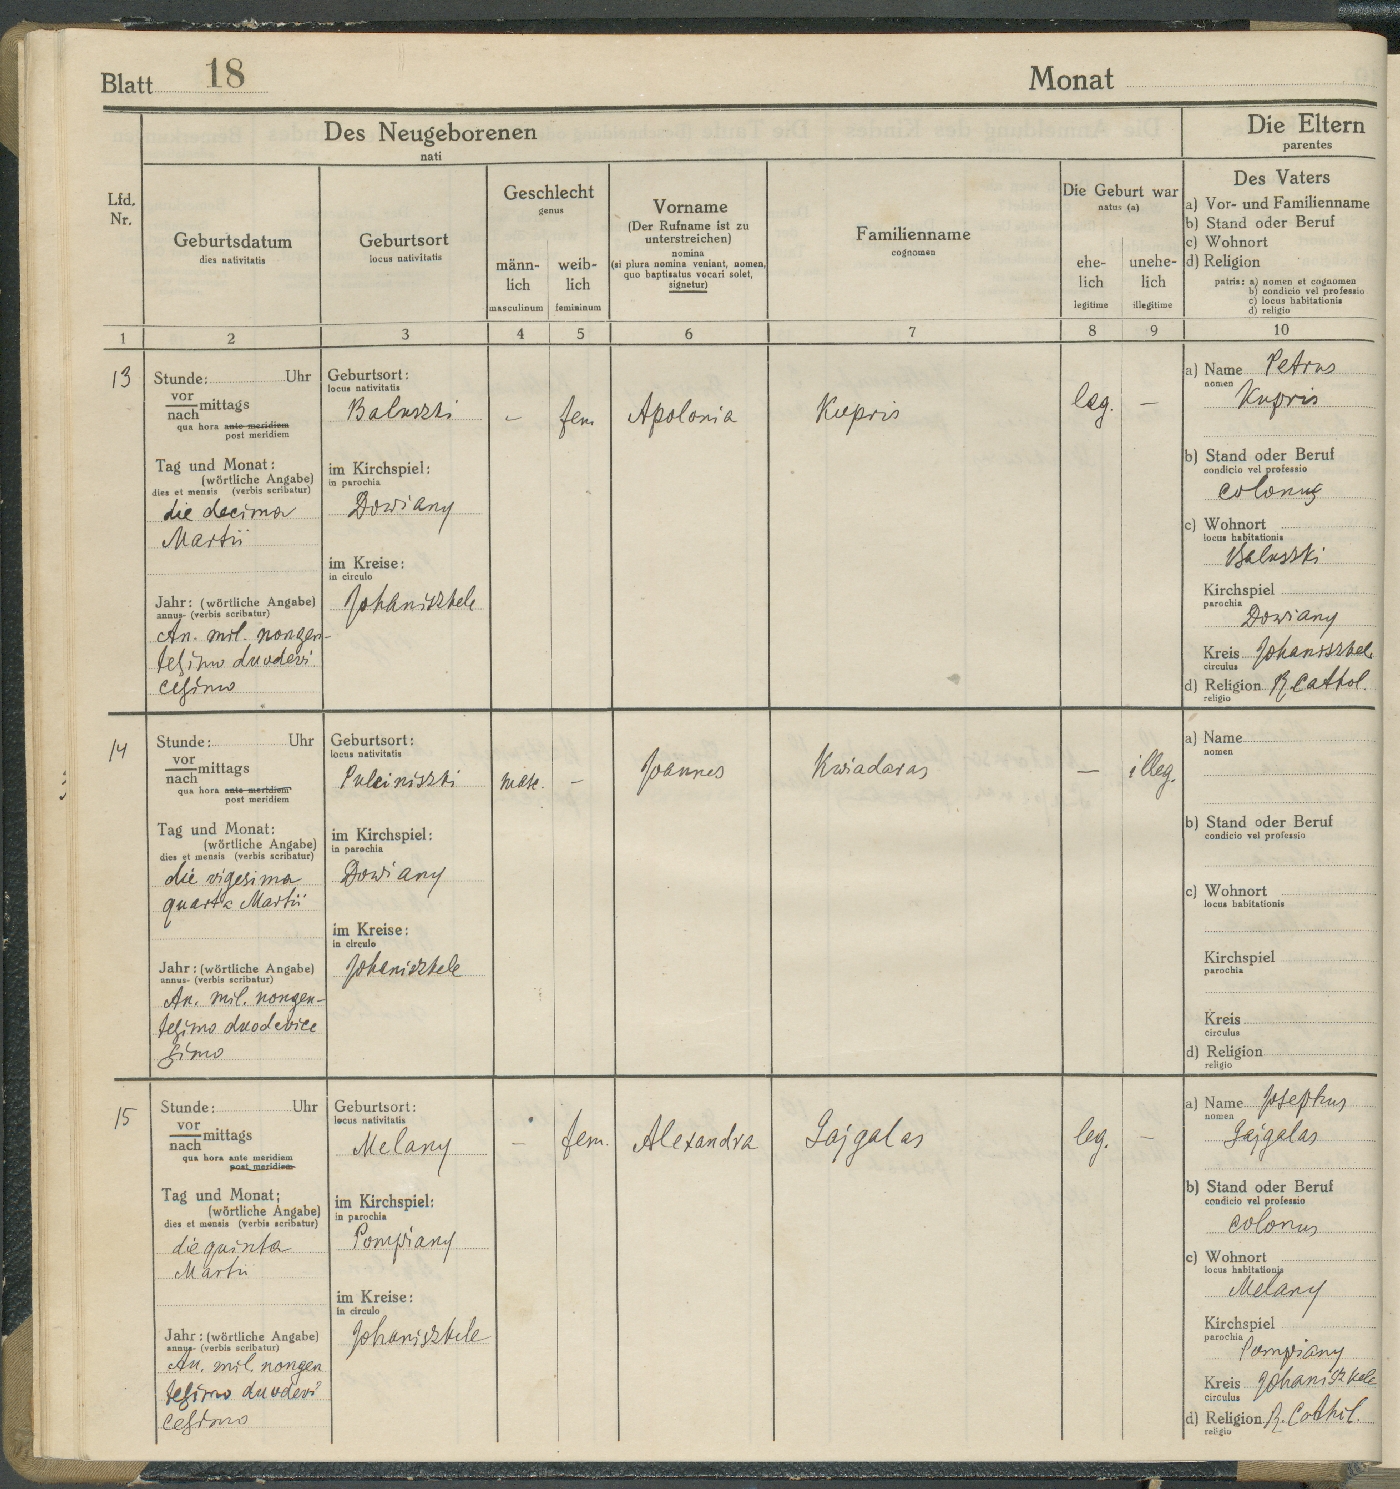 Blatt 18
Monat
Des Neugeborenen
nati
Die Eltern
parentes
Lfd.
Nr.
Geburtsdatum
dies nativitatis
Geburtsort
locus nativitatis
Geschlecht
genus
männ-
lich
masculinum
weib-
lich
femininum
Vorname
(Der Rufname ist zu
unterstreichen)
nomina
(si plura nomina veniant, nomen,
quo baptisatus vocari solet,
signetur)
Familienname
cognomen
Die Geburt war
natus (a)
ehe-
lich
legitime
unehe-
lich
illegitime
Des Vaters
a) Vor- und Familienname
b) Stand oder Beruf
c) Wohnort
d) Religion
patris: a) nomen et cognomen
b) condicio vel professio
c) locus habitationis
d) religio
1 2 3 4 5 6 7 8 9 10
13
Stunde: Uhr
vor
nach mittags
qua hora ante meridiem
post meridiem
Tag und Monat:
(wörtliche Angabe)
dies et mensis (verbis scribatur)
die decima
Martii
Jahr: (wörtliche Angabe)
annus- (verbis scribatur)
An. mil. nongen-
tesimo duodevi
cesimo
Geburtsort:
locus nativitatis
Baluszki
im Kirchspiel:
in parochia
Dowiany
im Kreise:
in circulo
Johaniszkele
-
fem.
Apolonia
Kupris
leg.
—
a) Name Petrus
nomen
Kupris
b) Stand oder Beruf
condicio vel professio
colonus
c) Wohnort
locus habitationis
Baluszki
Kirchspiel
parochia
Dowiany
Kreis Johaniszkel
circulus
d) Religion R. Cathol.
religio
14
Stunde: Uhr
vor
nach mittags
qua hora ante meridiem
post meridiem
Tag und Monat:
(wörtliche Angabe)
dies et mensis (verbis scribatur)
die vigesima
quarta Martii
Jahr: (wörtliche Angabe)
annus- (verbis scribatur)
An. mil. nongen-
tesimo duodevice
simo
Geburtsort:
locus nativitatis
im Kirchspiel:
in parochia
Dowiany
im Kreise:
in circulo
Johaniszkele
masc.
—
Joannes
Kwiadaras
—
illeg.
a) Name
nomen
b) Stand oder Beruf
condicio vel professio
c) Wohnort
locus habitationis
Kirchspiel
parochia
Kreis
circulus
d) Religion
religio
15
Stunde: Uhr
vor
nach mittags
qua hora ante meridiem
post meridiem
Tag und Monat:
(wörtliche Angabe)
dies et mensis (verbis scribatur)
die quinta
Martii
Jahr: (wörtliche Angabe)
annus- (verbis scribatur)
An. mil. nongen
tesimo duodevi
cesimo
Geburtsort:
locus nativitatis
Melany
im Kirchspiel:
in parochia
Pompiany
im Kreise:
in circulo
Johaniszkele
—
fem.
Alexandra
Gajgalas
leg.
—
a) Name Josephus
nomen
Gajgalas
b) Stand oder Beruf
condicio vel professio
colonus
c) Wohnort
locus habitationis
Melany
Kirchspiel
parochia
Pompiany
Kreis Johaniszkele
circulus
d) Religion R. Cathol.
religio